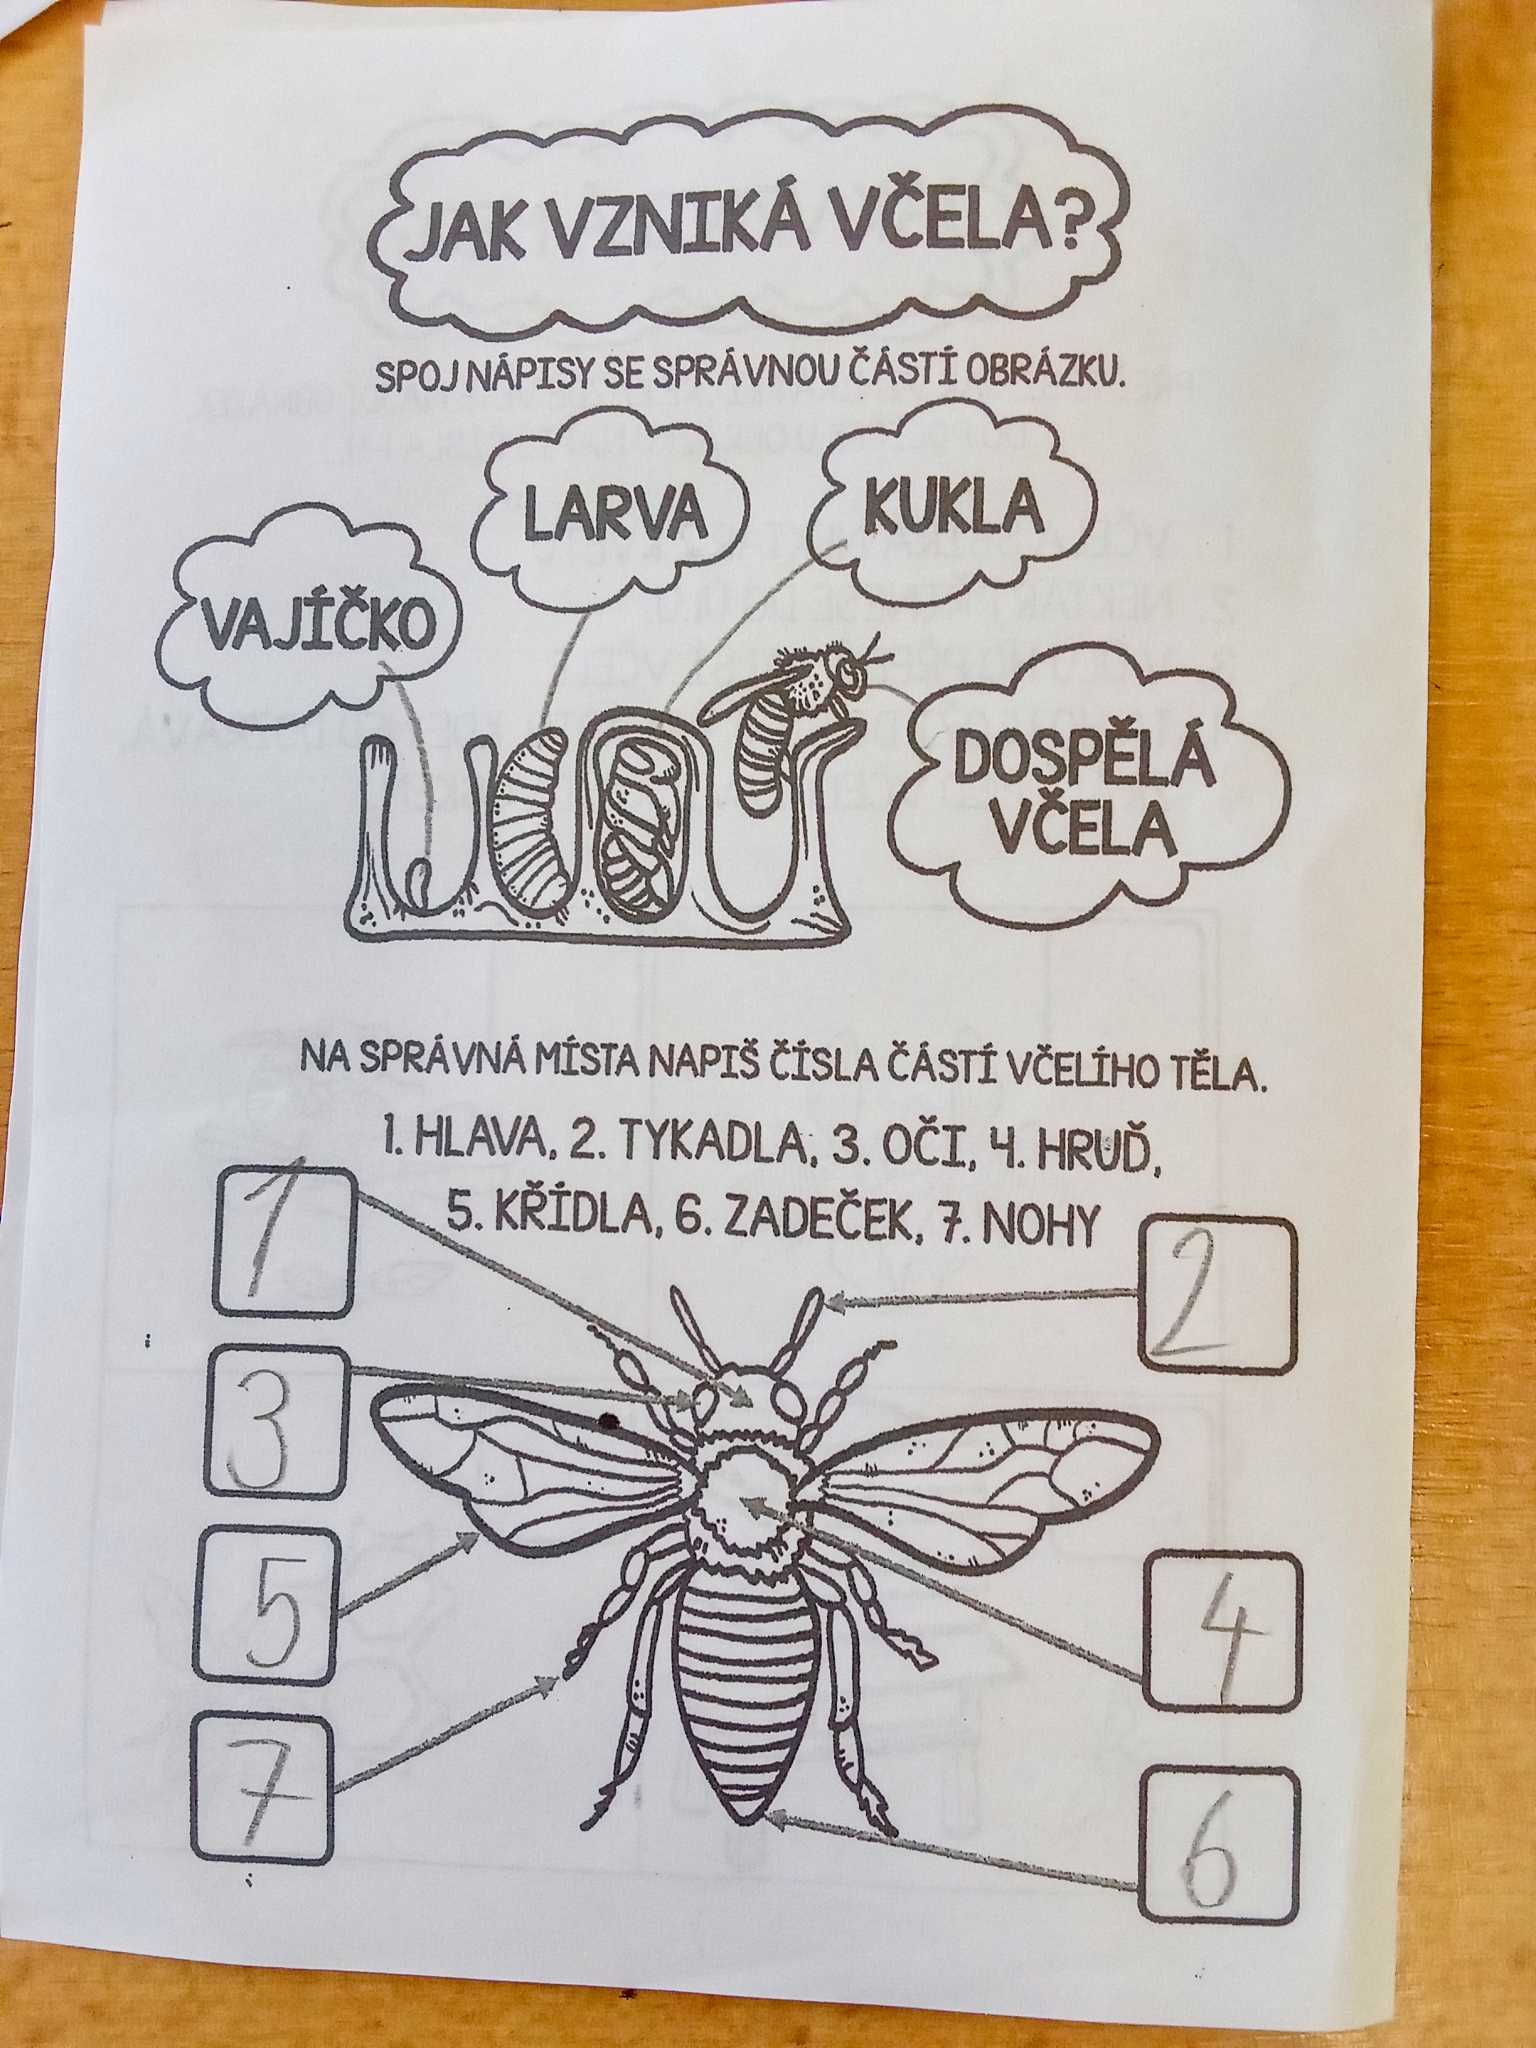 JAK VZNIKÁ VČELA?
SPOJ NÁPISY SE SPRÁVNOU ČÁSTÍ OBRÁZKU.
VAJÍČKO
LARVA
KUKLA
DOSPĚLÁ
VČELA
NA SPRÁVNÁ MÍSTA NAPIŠ ČÍSLA ČÁSTÍ VČELÍHO TĚLA.
1. HLAVA, 2. TYKADLA, 3. OČI, 4. HRUĎ,
5. KŘÍDLA, 6. ZADEČEK, 7. NOHY
1
2
3
5
4
7
6